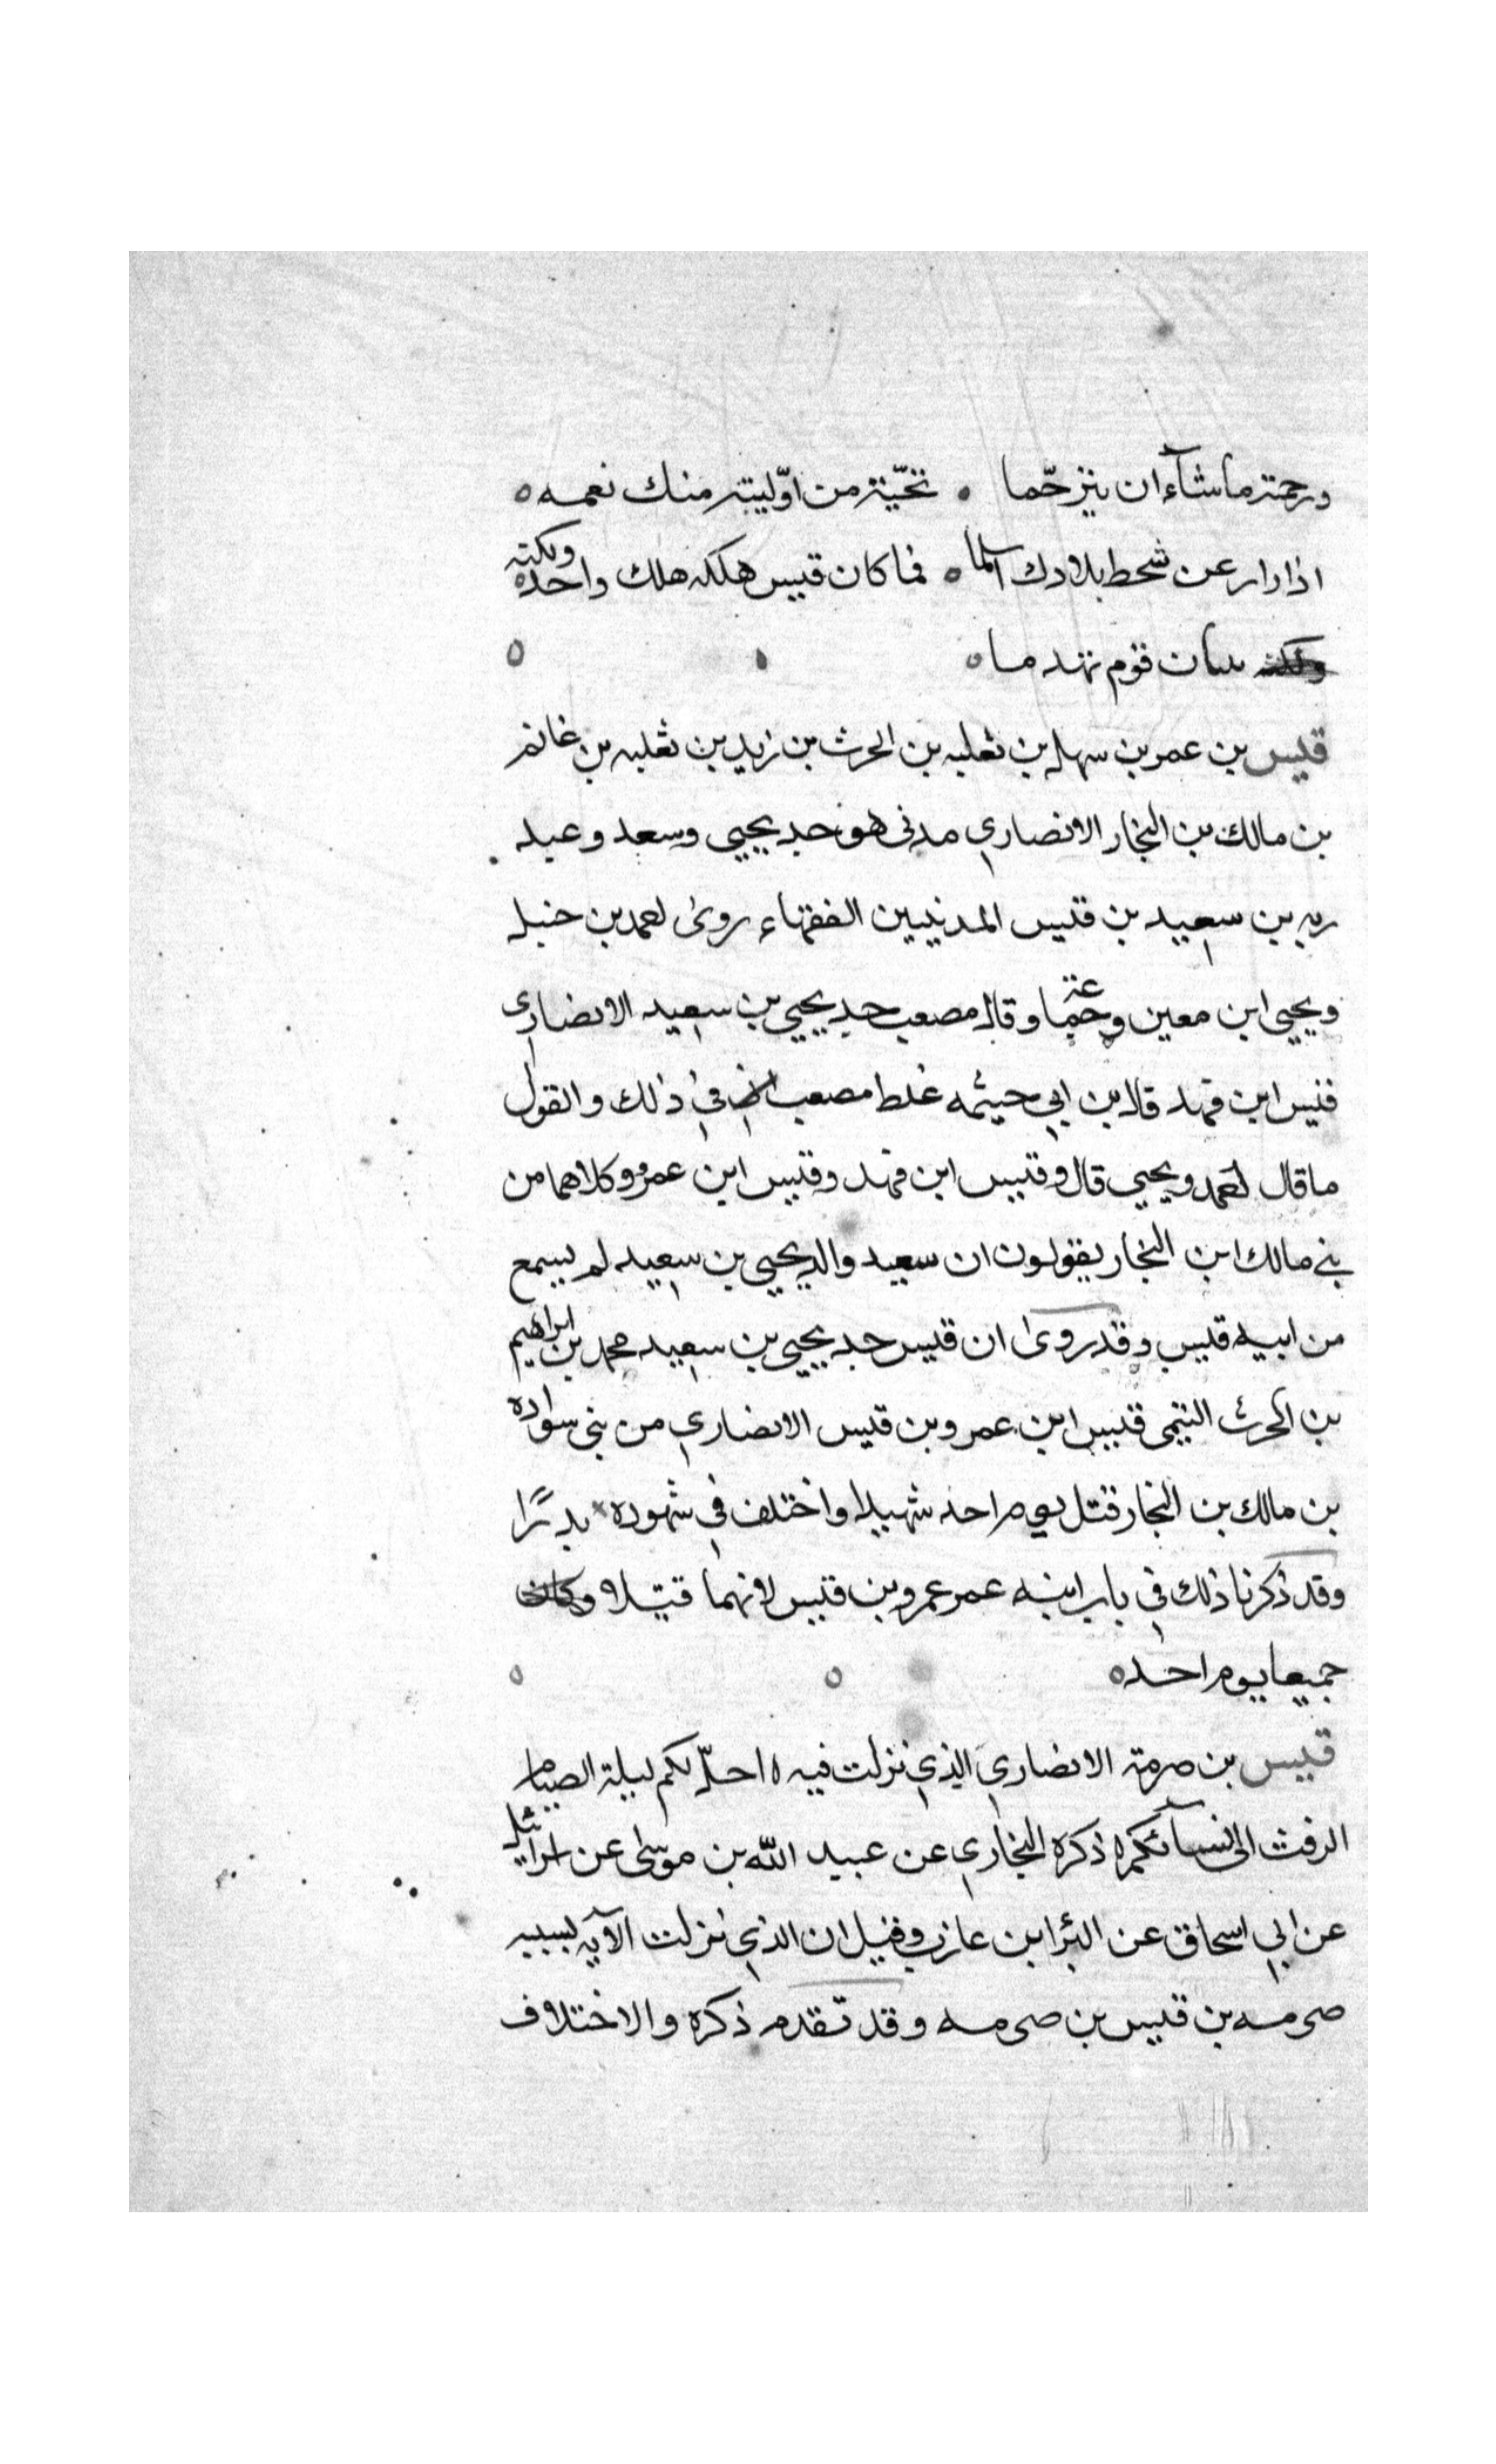 ورحمته ما شآء ان يترحّما ٥ تحيّة من اوّليته منك نعمه ٥
اذا زار عن شحط بلادك سلما ٥ فما كان قيس هلكه هلك واحده ولكنه
بنيان قوم تهدما ٥
قيس بن عمر بن سهل بن ثعلبه بن الحرث بن زيد بن ثعلبه بن غانم
بن مالك بن النجار الانصاري مدنى هو جد يحيى وسعد وعبد
ربه بن سعيد بن قيس المدنيين الفقهاء روى احمد بن حنبل
ويحيى ابن معين وقال مصعب جد يحيى بن سعيد الانصاري
قيس ابن قهد قال بن ابي خيثمه غلط مصعب في ذلك والقول
ما قال احمد ويحيى قال وقيس ابن قهد وقيس ابن عمرو وكلاهما من
بني مالك ابن النجار يقولون ان سعيد والد يحيى بن سعيد لم يسمع
من ابيه قيس وقد روى ان قيس جد يحيى بن سعيد محمد بن ابراهيم
بن الحرث التيمى قيس ابن عمرو بن قيس الانصاري من بنى سواده
بن مالك بن النجار قتل يوم احد شهيدا واختلف في شهوده بدرًا
وقد ذكرنا ذلك في باب ابنه عمر عمرو بن قيس لانهما قتيلا وكان
جميعا يوم احد ٥
قيس بن صرمة الانصاري الذي نزلت فيه ٥ احلّ لكم ليلة الصيام
الرفث الى نسآئكم ٥ ذكره البخاري عن عبيد الله بن موسى عن اسرائيل
عن ابي اسحاق عن البرا ابن عازب وقيل ان الذي نزلت الآيه بسببه
صرمه بن قيس بن صرمه وقد تقدم ذكره والاختلاف